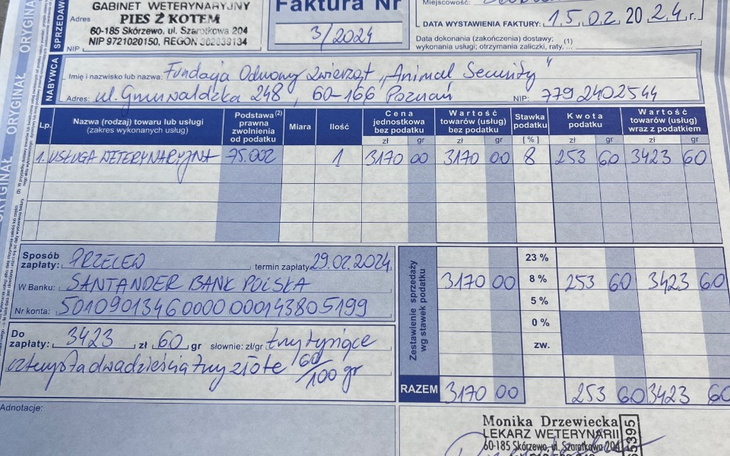 GABINET WETERYNARYJNY
PIES Z KOTEM
60-185 Skórzewo, ul. Szarotkowa 204
NIP 9721020150, REGON 302039134
SPRZEDAWCA
NIP
Faktura Nr
3/2024
Miejscowość:
DATA WYSTAWIENIA FAKTURY: 15.02.2024 r.
Data dokonania (zakończenia) dostawy; (1)
wykonania usługi; otrzymania zaliczki, raty:
ORYGINAŁ
NABYWCA
Imię i nazwisko lub nazwa: Fundacja Obrony Zwierząt „Animal Security"
Adres: ul. Grunwaldzka 248, 60-166 Poznań NIP: 7792402544
Lp. Nazwa (rodzaj) towaru lub usługi (zakres wykonanych usług) Podstawa (2) prawna zwolnienia od podatku Miara Ilość Cena jednostkowa bez podatku Wartość towarów (usług) bez podatku Stawka podatku Kwota podatku Wartość towarów (usług) wraz z podatkiem
zł gr zł gr [%] zł gr zł gr
1. USŁUGA WETERYNARYJNA 75.00Z 1 3170 00 3170 00 8 253 60 3423 60
Sposób zapłaty: PRZELEW termin zapłaty 29.02.2024.
W Banku: SANTANDER BANK POLSKA
Nr konta: 50109013460000000143805199
Do zapłaty: 3423 zł 60 gr słownie: zł/gr trzy tysiące
czterysta dwadzieścia trzy złote 60/100 gr
Zestawienie sprzedaży wg stawek podatku
23 %
3170 00 8 % 253 60 3423 60
5 %
0 %
zw.
RAZEM 3170 00 253 60 3423 60
Adnotacje:
Monika Drzewiecka
LEKARZ WETERYNARII
60-185 Skórzewo, ul. Szarotkowa 204